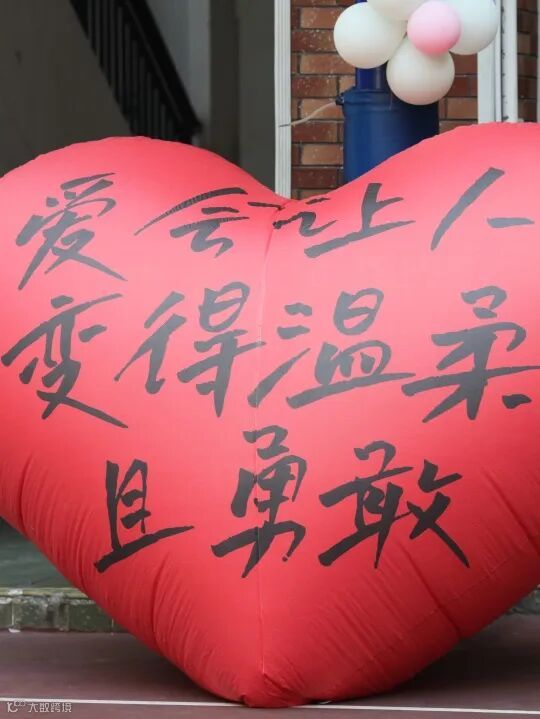 爱会让人
变得温柔
且勇敢
大数跨境